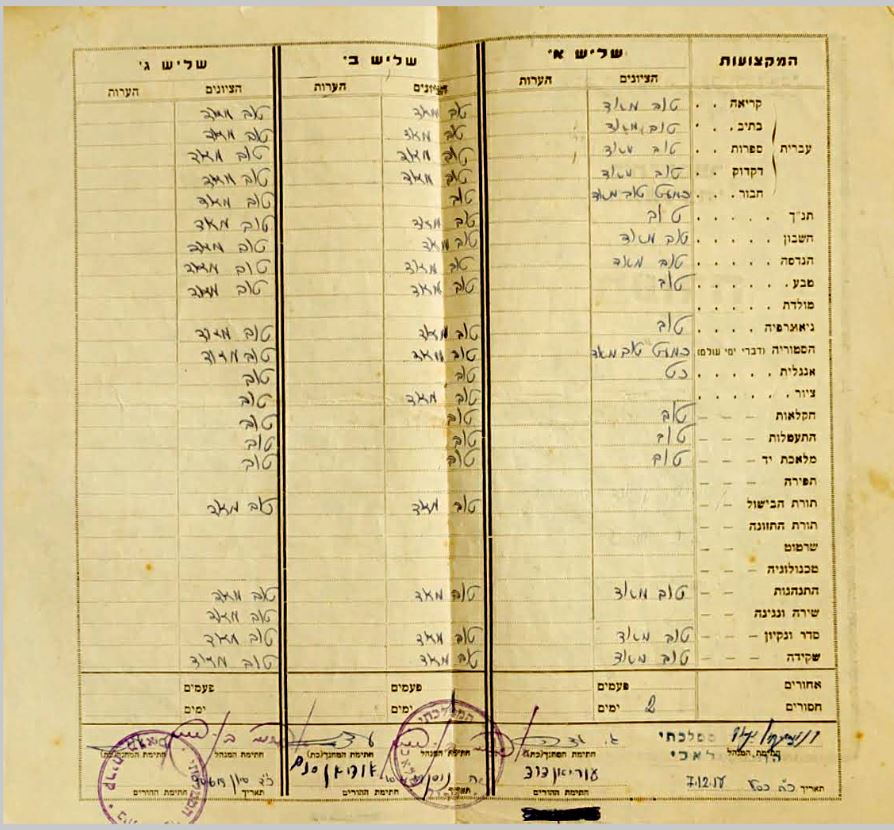 המקצועות שליש א' שליש ב' שליש ג'
הציונים הערות הציונים הערות הציונים הערות
עברית
קריאה . . טוב מאוד טוב מאד טוב מאד
כתיב . . טוב מאוד טוב מאד טוב מאד
ספרות . . טוב מאוד טוב מאד טוב מאד
דקדוק . . טוב מאוד טוב מאד טוב מאד
חבור . . כמעט טוב מאד טוב טוב מאד
תנ"ך . . . . . טוב טוב מאד טוב מאד
חשבון . . . . . טוב מאוד טוב מאד טוב מאד
הנדסה . . . . . טוב מאוד טוב מאד טוב מאד
טבע . . . . . טוב טוב מאד טוב מאד
מולדת . . . . .
גיאוגרפיה . . . . טוב טוב מאד טוב מאוד
הסטוריה (דברי ימי עולם) כמעט טוב מאד טוב מאד טוב מאוד
אנגלית . . . . . כט טוב טוב
ציור . . . . . טוב מאד טוב
חקלאות – – – טוב טוב טוב
התעמלות – – – טוב טוב טוב
מלאכת יד – – – טוב טוב טוב
תפירה – – –
תורת הבישול – – טוב מאד טוב מאד
תורת התזונה – –
שרטוט – – –
טכנולוגיה – –
התנהגות – – טוב מאוד טוב מאד טוב מאד
שירה ונגינה – – טוב מאד
סדר ונקיון – – טוב מאוד טוב מאד טוב מאד
שקידה – – – טוב מאוד טוב מאד טוב מאוד
אחורים פעמים פעמים פעמים
חסורים 2 ימים ימים ימים
ממלכתי
חתימת המנהל חתימת המחנך(כת) חתימת המנהל חתימת המחנך(כת) חתימת המנהל חתימת המחנך(כת)
תאריך 7.12.17 חתימת ההורים תאריך חתימת ההורים תאריך חתימת ההורים